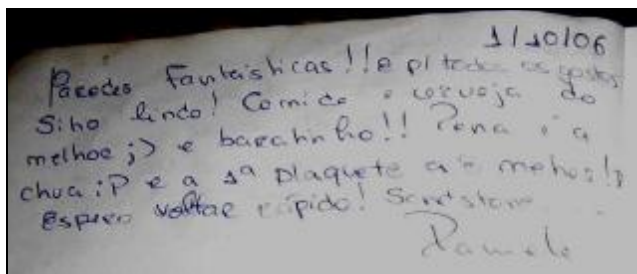 1/10/06
Paredes Fantásticas!! e p/ todos os gostos
Sitio lindo! Comida e cerveja do
melhor ;) e baratinho!! Pena é a
chuva :P e a 1ª plaquete a
Espero voltar rápido!